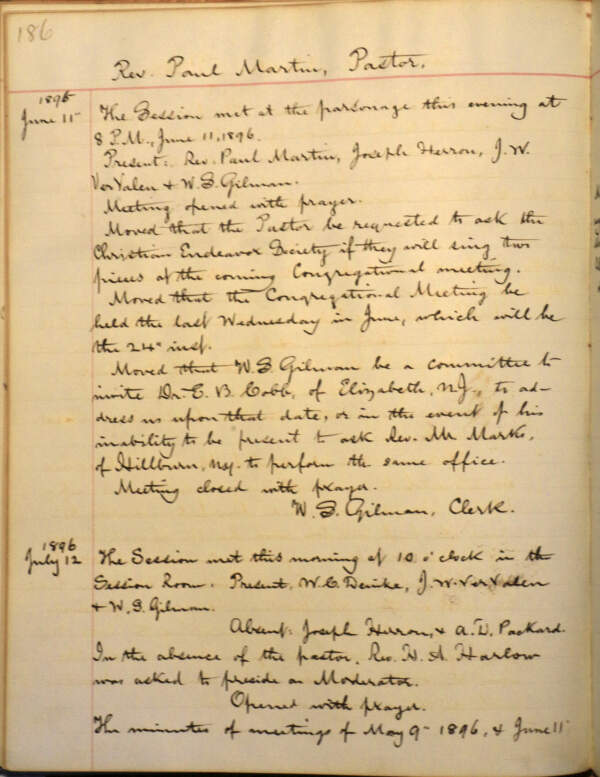 186
Rev. Paul Martin, Pastor.
1896
June 11
The Session met at the parsonage this evening at
8 P.M., June 11, 1896.
Present: Rev. Paul Martin, Joseph Herron, J. W.
VerValen & W. S. Gilman.
Meeting opened with prayer.
Moved that the Pastor be requested to ask the
Christian Endeavor Society if they will sing two
pieces at the coming Congregational meeting.
Moved that the Congregational Meeting be
held the last Wednesday in June, which will be
the 24" inst.
Moved that W. S. Gilman be a committee to
invite Dr. E. B. Cobb, of Elizabeth, N.J., to ad-
dress us upon that date, or in the event of his
inability to be present to ask Rev. Mr. Marks,
of Hillburn, N.Y. to perform the same office.
Meeting closed with prayer.
W. S. Gilman, Clerk.
1896
July 12
The Session met this morning at 10 o'clock in the
Session Room. Present, W. C. Deinke, J. W. VerValen
& W. S. Gilman.
Absent: Joseph Herron, & A. D. Packard.
In the absence of the pastor, Rev. H. A. Harlow
was asked to preside as Moderator.
Opened with prayer.
The minutes of meetings of May 9 1896, & June 11